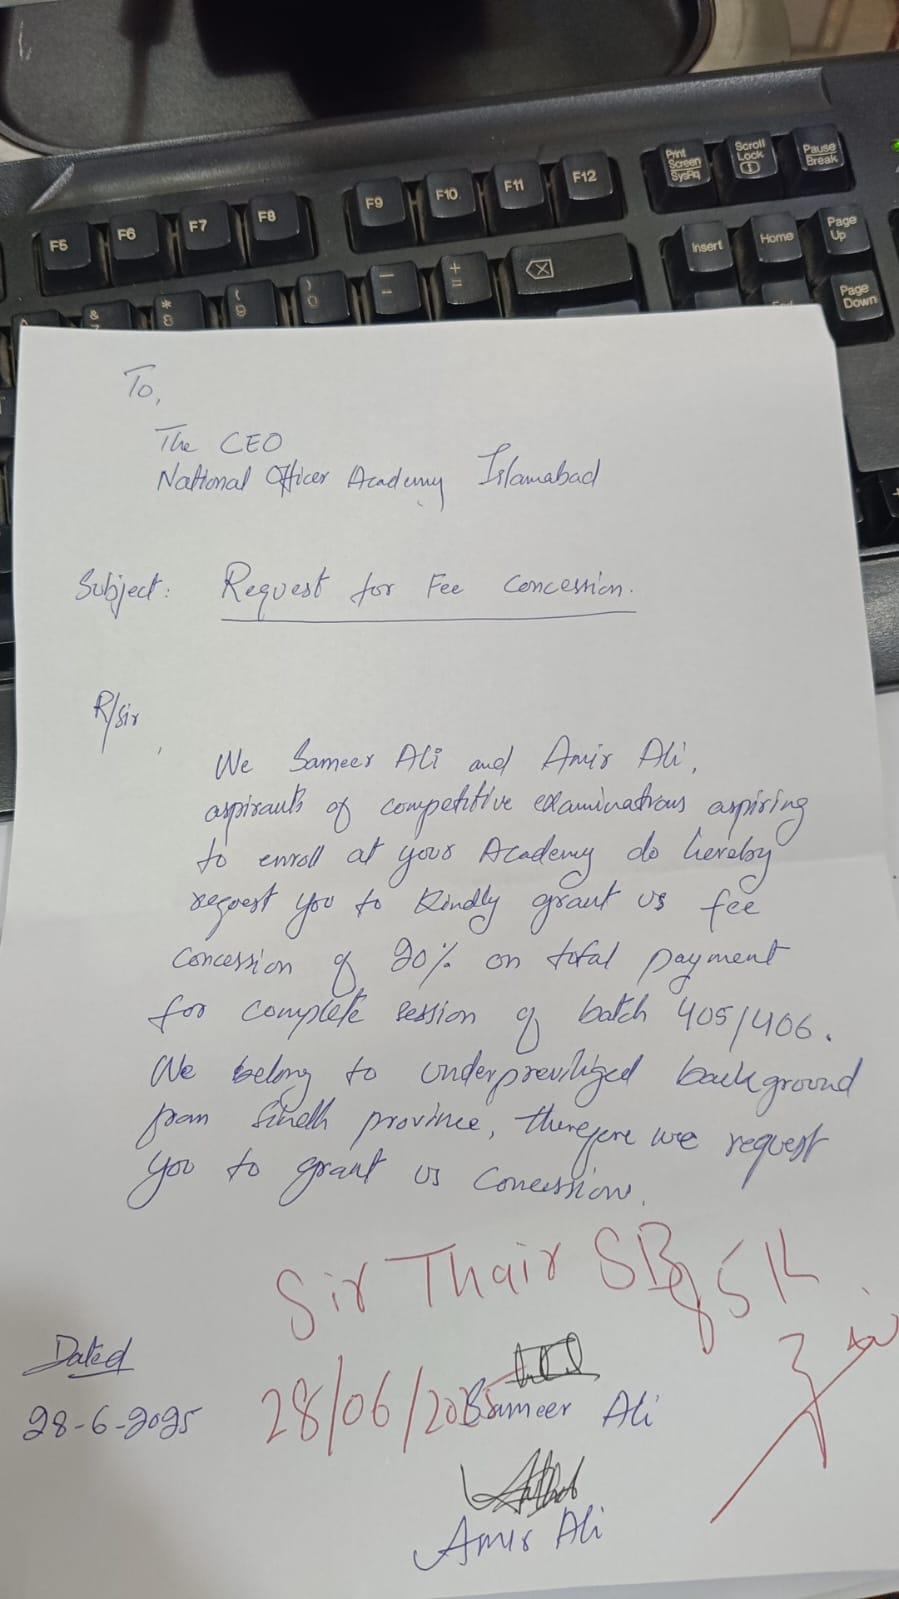 F5 F6 F7 F8 F9 F10 F11 F12
Print Screen SysRq
Scroll Lock
Pause Break
Insert Home Page Up
Page Down
& * 8 ( 9 ) 0 — - + =
To,
The CEO
National Officer Academy Islamabad
Subject: Request for Fee Concession.
R/Sir,
We Sameer Ali and Amir Ali,
aspirants of competitive examinations aspiring
to enroll at your Academy do hereby
request you to kindly grant us fee
concession of 20% on total payment
for complete session of batch 405/406.
We belong to underpreviliged background
from Sindh province, therefore we request
you to grant us concession.
Sir Thair SB 5K
Dated
28-6-2025
28/06/202
Sameer Ali
Amir Ali